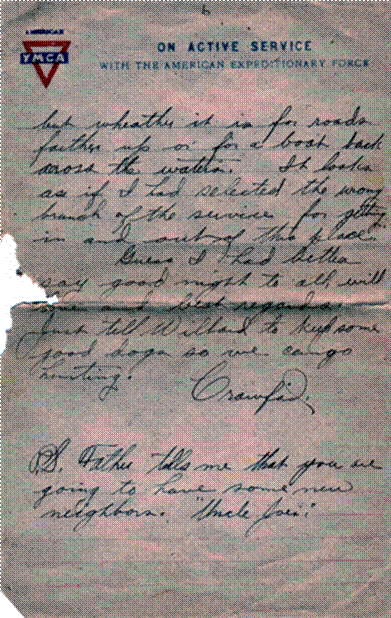 6
AMERICAN
YMCA
ON ACTIVE SERVICE
WITH THE AMERICAN EXPEDITIONARY FORCE
but wheather it is for roads
farther up or for a boat back
across the waters. It looks
as if I had selected the wrong
branch of the service for getting
in and out of this place.
Guess I had better
say good night to all, with
love and best regards.
Just tell Willard to keep some
good dogs so we can go
hunting.
Crawford.
P.S. Father tells me that you are
going to have some new
neighbors. "Uncle Joe's"